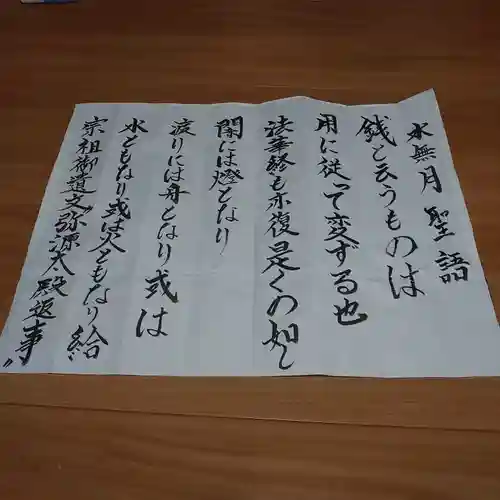 水無月聖語
銭と云うものは
用に従って変ずる也
法華経も亦復是くの如し
闇には燈となり
渡りには舟となり或は
水ともなり或は火ともなり給ふ
宗祖御遺文弥源太殿返事〃